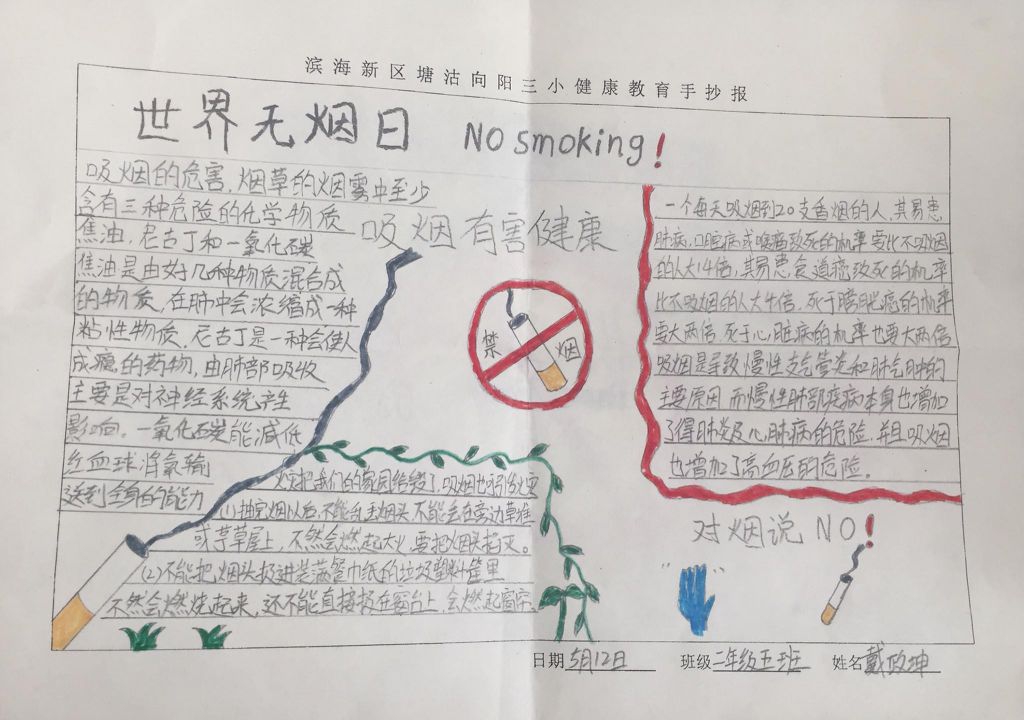 滨海新区塘沽向阳三小健康教育手抄报
世界无烟日 NO smoking!
吸烟的危害,烟草的烟雾中至少
含有三种危险的化学物质
焦油,尼古丁和一氧化碳
焦油是由好几种物质混合成
的物质,在肺中会浓缩成一种
粘性物质,尼古丁是一种会使人
成瘾的药物,由肺部吸收
主要是对神经系统产生
影响。一氧化碳能减低
红血球将氧输
送到全身的能力
吸烟有害健康
禁烟
一个每天吸烟到20支香烟的人,其易患
肺病,口腔病或喉癌致死的机率要比不吸烟
的人大14倍,其易患食道癌致死的机率
比不吸烟的人大4倍,死于膀胱癌的机率
要大两倍,死于心脏病的机率也要大两倍
吸烟是导致慢性支气管炎和肺气肿的
主要原因 而慢性肺部疾病本身也增加
了得肺炎及心肺病的危险,并且吸烟
也增加了高血压的危险。
把我们的家园给毁了,吸烟也
(1)抽完烟以后,不能乱丢烟头,不能丢在旁边草堆
或草屋上,不然会燃起大火,要把烟头掐灭。
(2)不能把烟头投进装满餐巾纸的垃圾塑料筐里
不然会燃烧起来,还不能直接投在窗台上,会燃起窗帘。
对烟说NO!
日期5月12日 班级二年级五班 姓名戴政坤